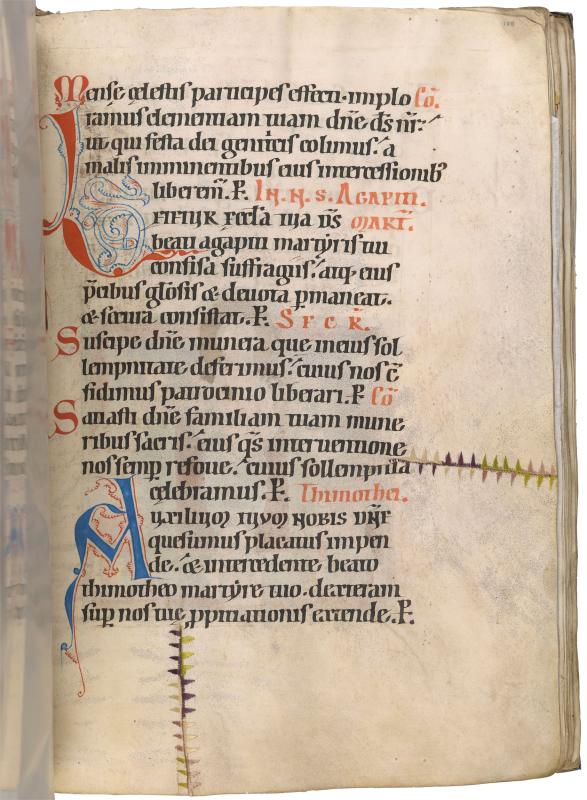 Mense celestis participes effecti. implo Cō.
ramus clementiam tuam dñe ds nr̄:
ut qui festa dei genitricis colimus. a
malis imminentibus eius intercessionib;
liberem̄. P. IN. N. S. AGAPITI.
LETETUR eccla tua ds̄ MART.
beati agapiti martyris tui
confisa suffragiis. atq; eius
p̄cibus gl̄osis & deuota p̄maneat.
& secura consistat. P. SECR̄.
Suscipe dñe munera que in eius sol
lempnitate deferimus. cuius nos c̄
fidimus patrocinio liberari. P. Cō
Satiasti dñe familiam tuam mune
ribus sacris. eius qs̄ interuentione
nos semp̄ refoue. cuius sollempnia
celebramus. P. Thimothei.
AUXILIUM TUUM NOBIS DÑE
quesumus placatus impen
de. & intercedente beato
thimotheo martyre tuo. dexteram
sup̄ nos tue ppitiationis extende. P.